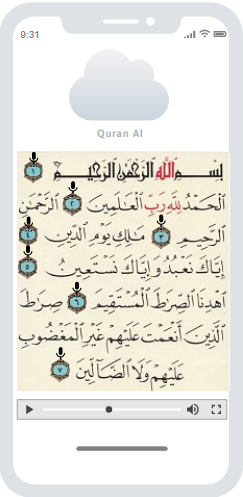 9:31
Quran AI
بِسْمِ اللَّهِ الرَّحْمَٰنِ الرَّحِيمِ ١
الْحَمْدُ لِلَّهِ رَبِّ الْعَالَمِينَ ٢ الرَّحْمَٰنِ
الرَّحِيمِ ٣ مَالِكِ يَوْمِ الدِّينِ ٤
إِيَّاكَ نَعْبُدُ وَإِيَّاكَ نَسْتَعِينُ ٥
اهْدِنَا الصِّرَاطَ الْمُسْتَقِيمَ ٦ صِرَاطَ
الَّذِينَ أَنْعَمْتَ عَلَيْهِمْ غَيْرِ الْمَغْضُوبِ
عَلَيْهِمْ وَلَا الضَّالِّينَ ٧